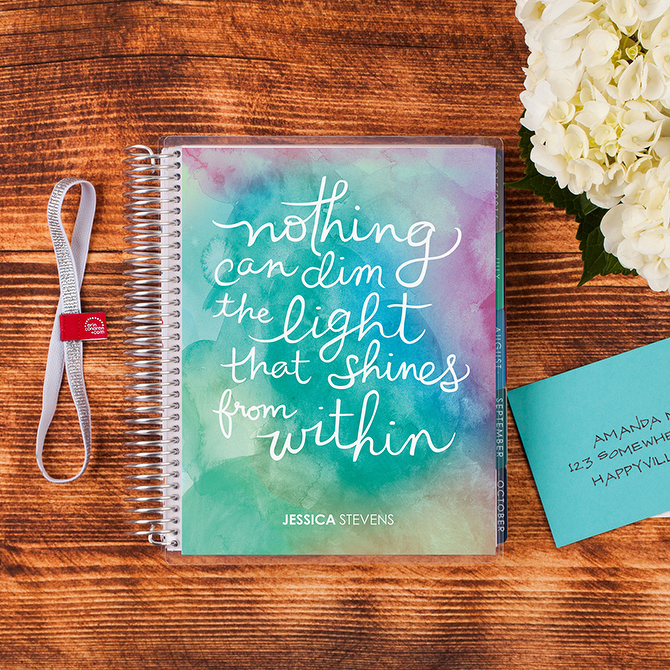 nothing
can dim
the light
that shines
from within
JESSICA STEVENS
JULY
AUGUST
SEPTEMBER
OCTOBER
erin
condren
.com
AMANDA
123 SOMEWHE
HAPPYVILL